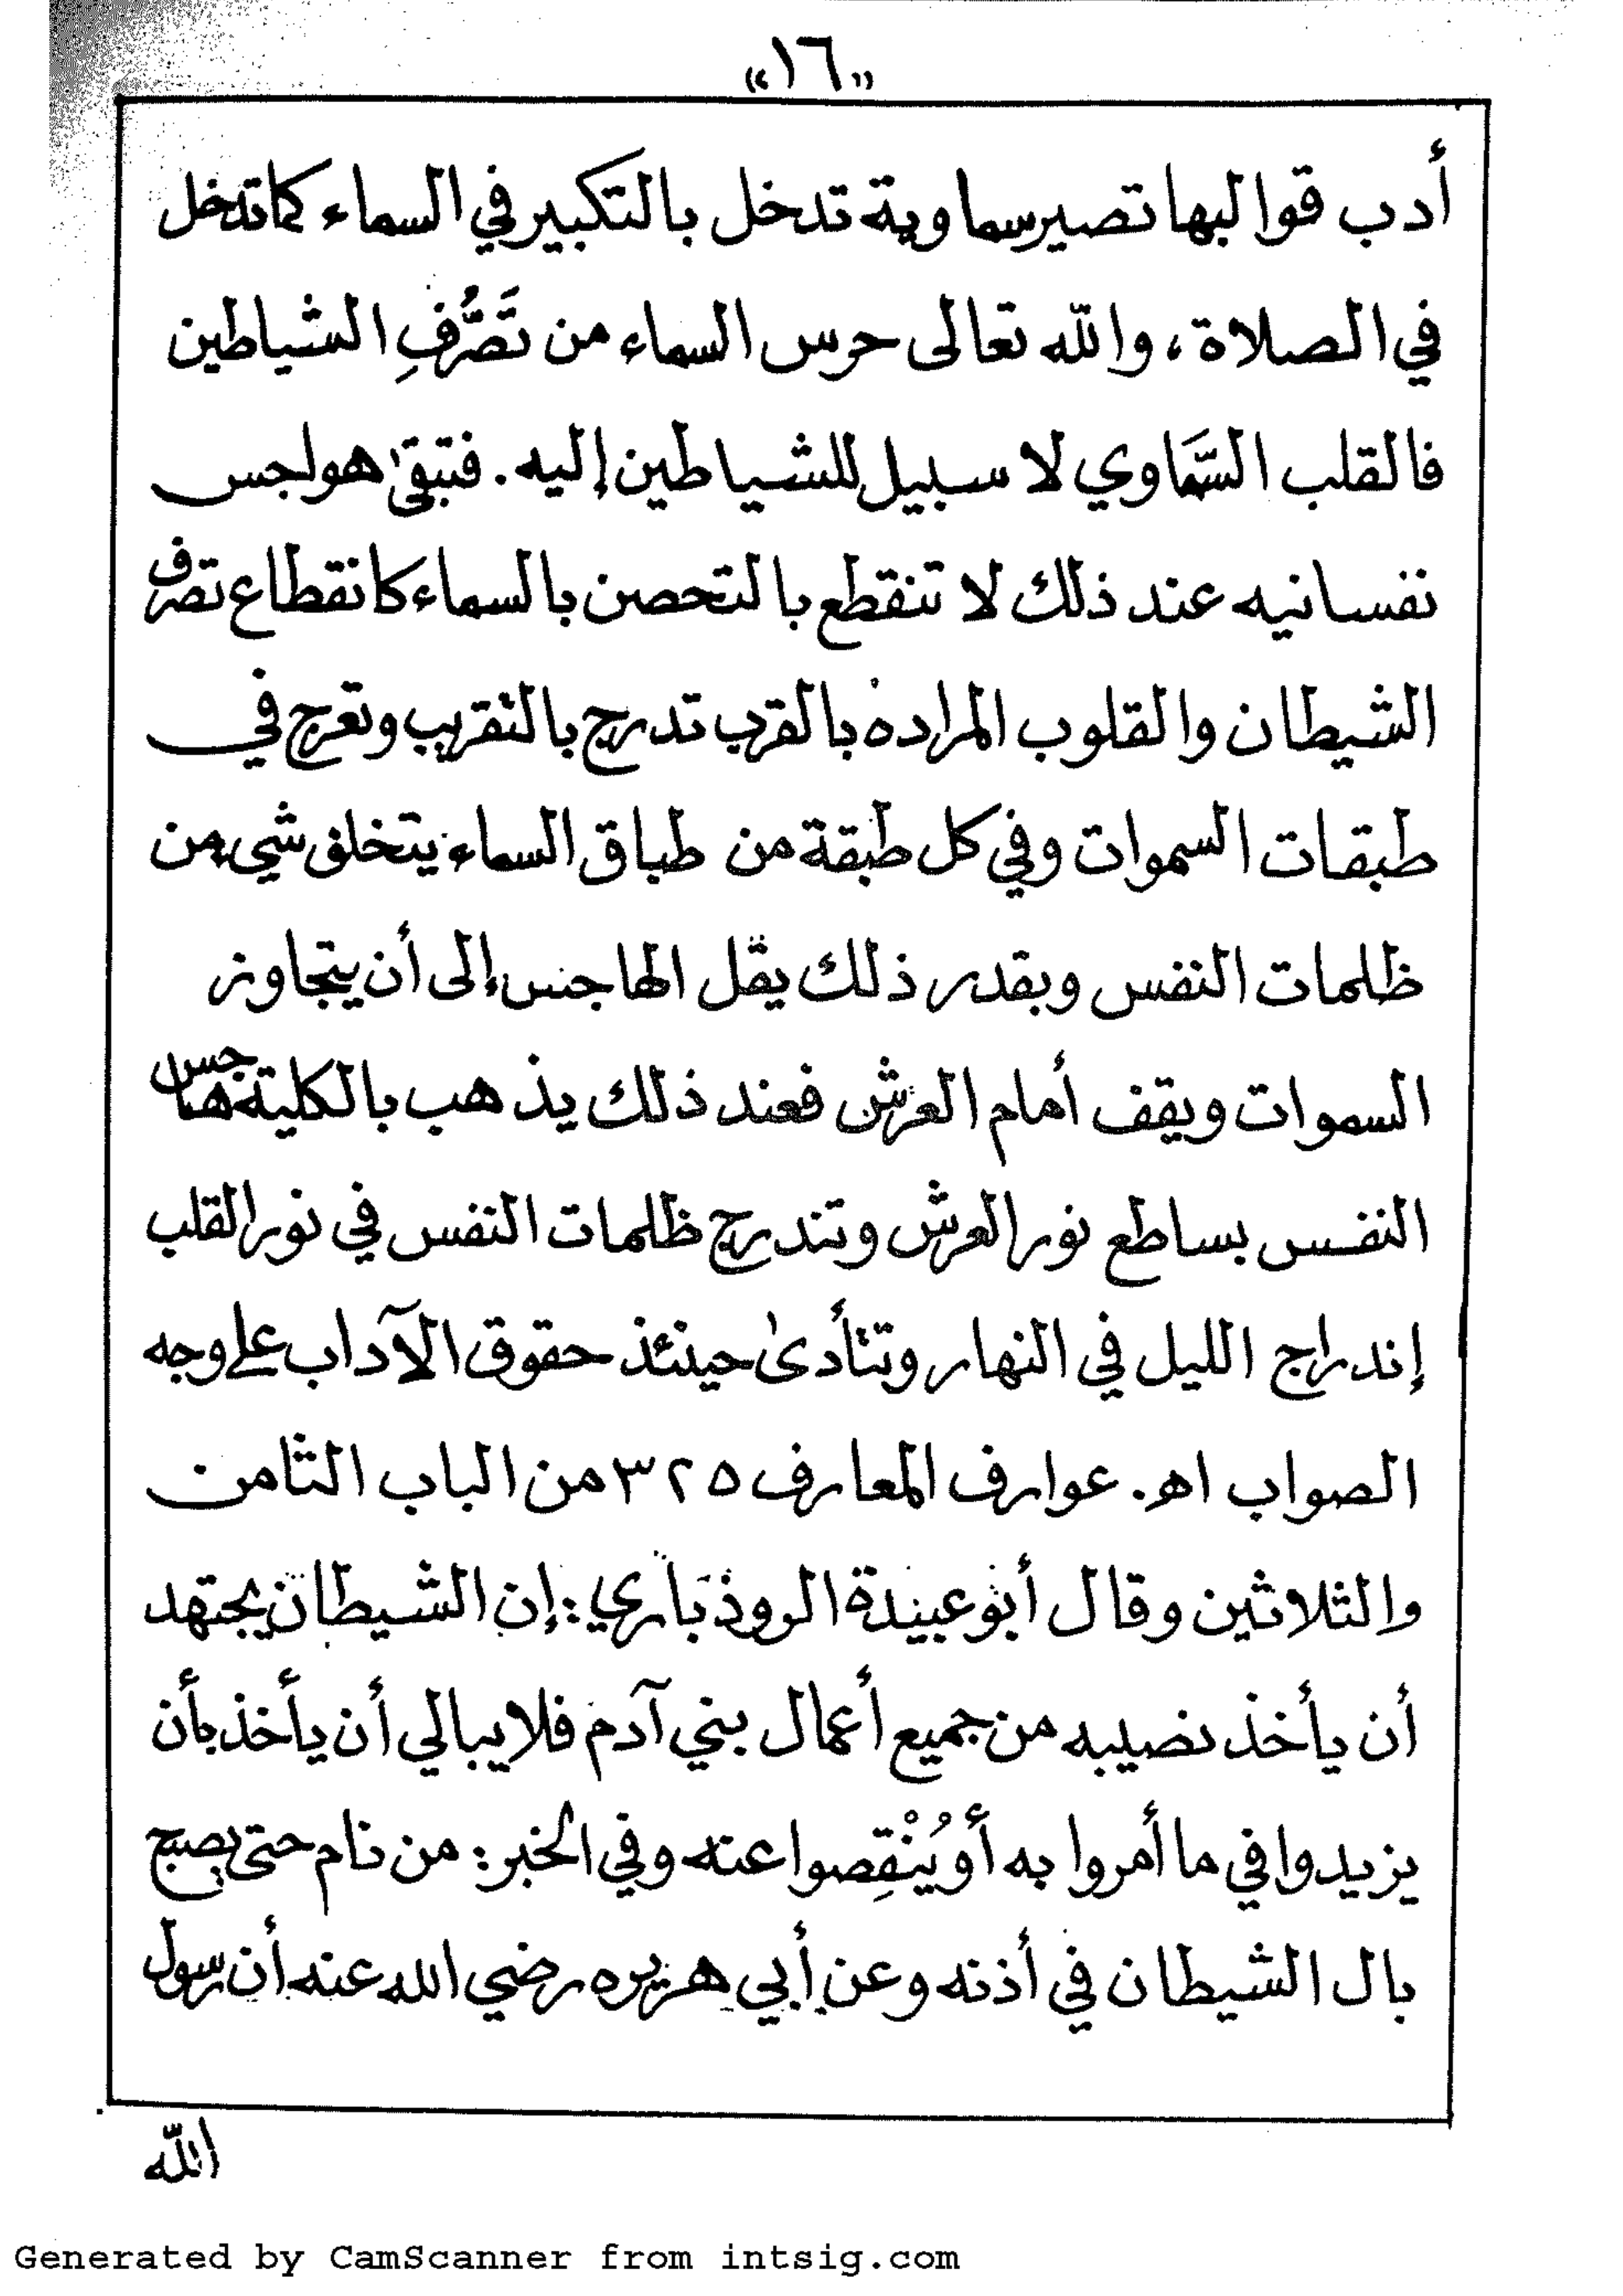 «١٦»
أدب قوالبها تصير سماوية تدخل بالتكبير في السماء كما تدخل
في الصلاة، والله تعالى حرس السماء من تَصَّرُفِ الشياطين
فالقلب السَّماوي لا سبيل للشياطين إليه. فتبقىٰ هواجس
نفسانيه عند ذلك لا تنقطع بالتحصن بالسماء كانقطاع تصرف
الشيطان والقلوب المراده بالقرب تدرج بالتقريب وتعرج في
طبقات السموات وفي كل طبقة من طباق السماء يتخلف شيء من
ظلمات النفس وبقدر ذلك يقل الهاجس إلى أن يتجاوز
السموات ويقف أمام العرش فعند ذلك يذهب بالكلية هاجس
النفس بساطع نور العرش وتندرج ظلمات النفس في نور القلب
إندراج الليل في النهار وتتأدىٰ حينئذ حقوق الآداب على وجه
الصواب اهـ. عوارف المعارف ٣٢٥ من الباب الثامن
والثلاثين وقال أبو عبيدة الروذباري: إن الشيطان يجتهد
أن يأخذ نصيبه من جميع أعمال بني آدم فلا يبالي أن يأخذ بأن
يزيدوا في ما أمروا به أو يُنْقِصوا عنه وفي الخبر: من نام حتى يصبح
بال الشيطان في أذنه وعن أبي هريره رضي الله عنه أن رسول
الله
Generated by CamScanner from intsig.com